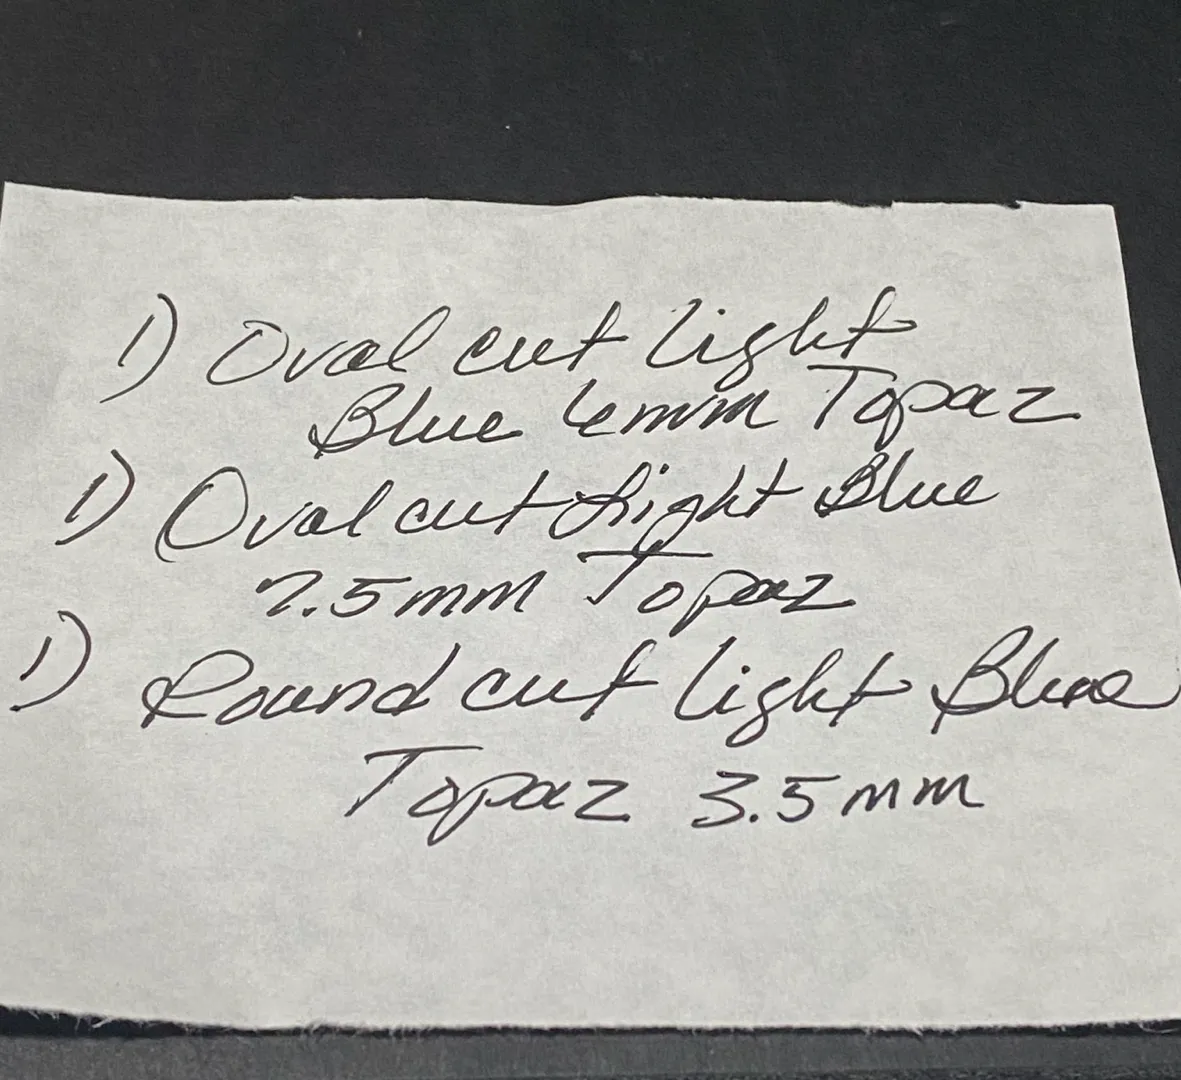 1) Oval cut light
Blue 6mm Topaz
1) Oval cut Light Blue
7.5mm Topaz
1) Round cut light Blue
Topaz 3.5mm